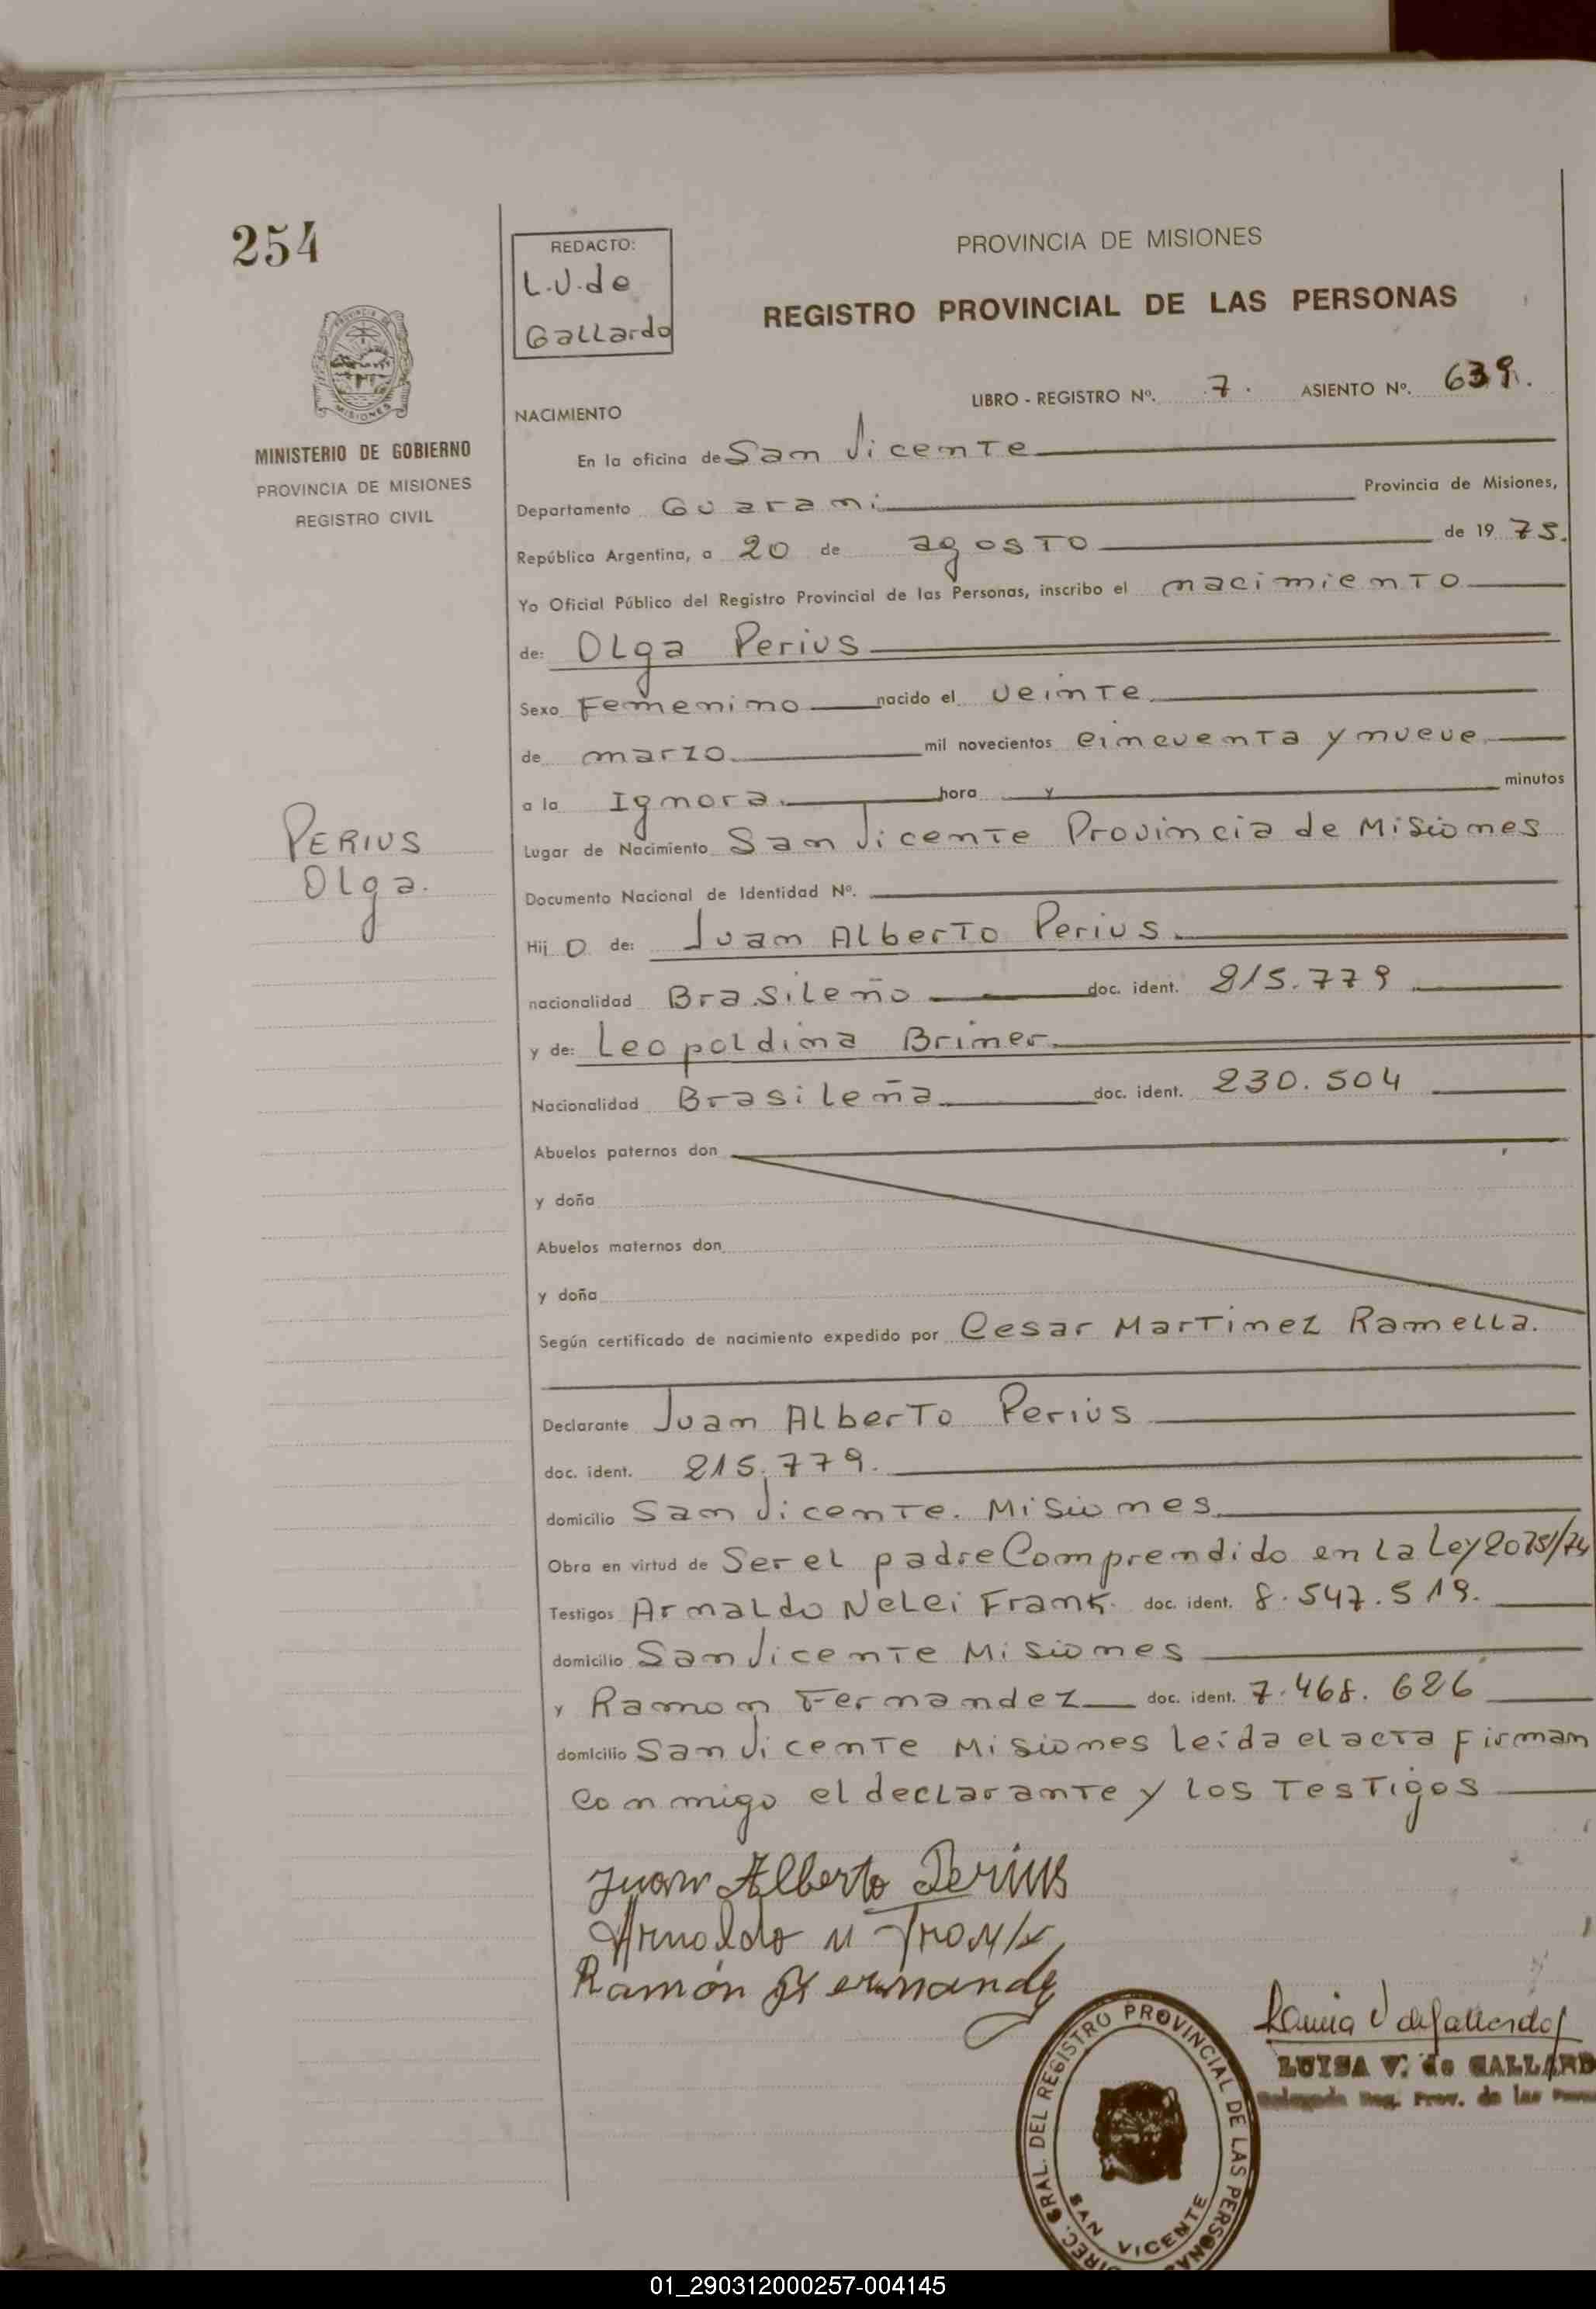 254
REDACTO:
L.V.de
Gallardo
PROVINCIA DE MISIONES
REGISTRO PROVINCIAL DE LAS PERSONAS
LIBRO - REGISTRO Nº. 7. ASIENTO Nº. 639.
MINISTERIO DE GOBIERNO
PROVINCIA DE MISIONES
REGISTRO CIVIL
NACIMIENTO
En la oficina de San Vicente
Departamento Guarani Provincia de Misiones,
República Argentina, a 20 de agosto de 19 75.
Yo Oficial Público del Registro Provincial de las Personas, inscribo el nacimiento
de: Olga Perius
Sexo Femenino nacido el veinte
de marzo mil novecientos cincuenta y nueve
a la Ignora. hora y minutos
Lugar de Nacimiento San Vicente Provincia de Misiones
PERIUS
Olga.
Documento Nacional de Identidad Nº.
Hij o de: Juan Alberto Perius.
nacionalidad Brasileño doc. ident. 215.779
y de: Leopoldina Briner
Nacionalidad Brasileña doc. ident. 230.504
Abuelos paternos don
y doña
Abuelos maternos don
y doña
Según certificado de nacimiento expedido por Cesar Martinez Ramella.
Declarante Juan Alberto Perius
doc. ident. 215.779.
domicilio San Vicente. Misiones
Obra en virtud de Ser el padre Comprendido en la Ley 20751/74
Testigos Arnaldo Nelci Frank. doc. ident. 8.547.519.
domicilio San Vicente Misiones
y Ramon Fernandez doc. ident. 7.468.626
domicilio San Vicente Misiones leída el acta firman
conmigo el declarante y los testigos
Juan Alberto Perius
Arnoldo N Frank
Ramón Fernandez
LUISA V. de GALLARD
Delegada Reg. Prov. de las
DIREC. GRAL. DEL REGISTRO PROVINCIAL DE LAS PERSONAS
SAN VICENTE
01_290312000257-004145